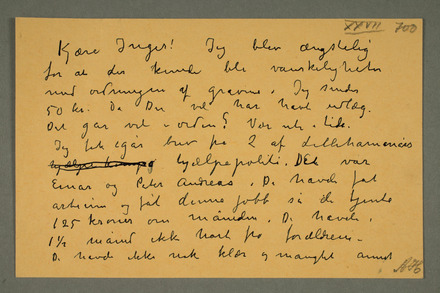 XXVII 703
Kjære Inger! Jeg blev ængstelig
for at der kunde bli vanskeligheter
med ordningen af graven. Jeg sender
50 kr. Da Du vel har havt utlæg.
Det går vel i orden?
Jeg fik igår brev fra 2 af Lillehammers
hjælpepoliti. Det var
Einar og Peter Andreas. De havde fåt
arbeide og fåt denne jobb så de tjente
125 kroner om måneden. De havde i
1½ måned ikke hørt fra forældrene.
De havde ikke nok klær og manglet annet